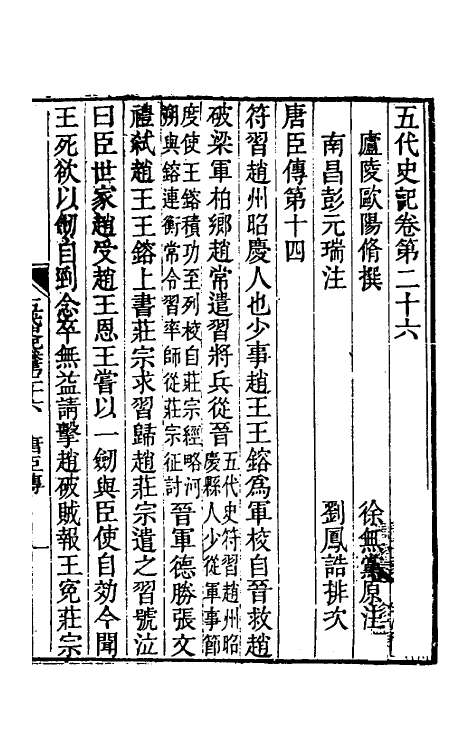 五代史記卷第二十六
廬陵歐陽脩撰 徐無黨原注
南昌彭元瑞注 劉鳳誥排次
唐臣傳第十四
符習趙州昭慶人也少事趙王王鎔爲軍校自晉救趙
破梁軍柏鄉趙常遣習將兵從晉五代史符習趙州昭慶縣人少從軍事節
度使王鎔積功至列校自莊宗經略河朔與鎔連衡常令習率師從莊宗征討晉軍德勝張文
禮弑趙王王鎔上書莊宗求習歸趙莊宗遣之習號泣
曰臣世家趙受趙王恩王嘗以一劒與臣使自効今聞
王死欲以劒自刭念卒無益請擊趙破賊報王寃莊宗
唐臣傳